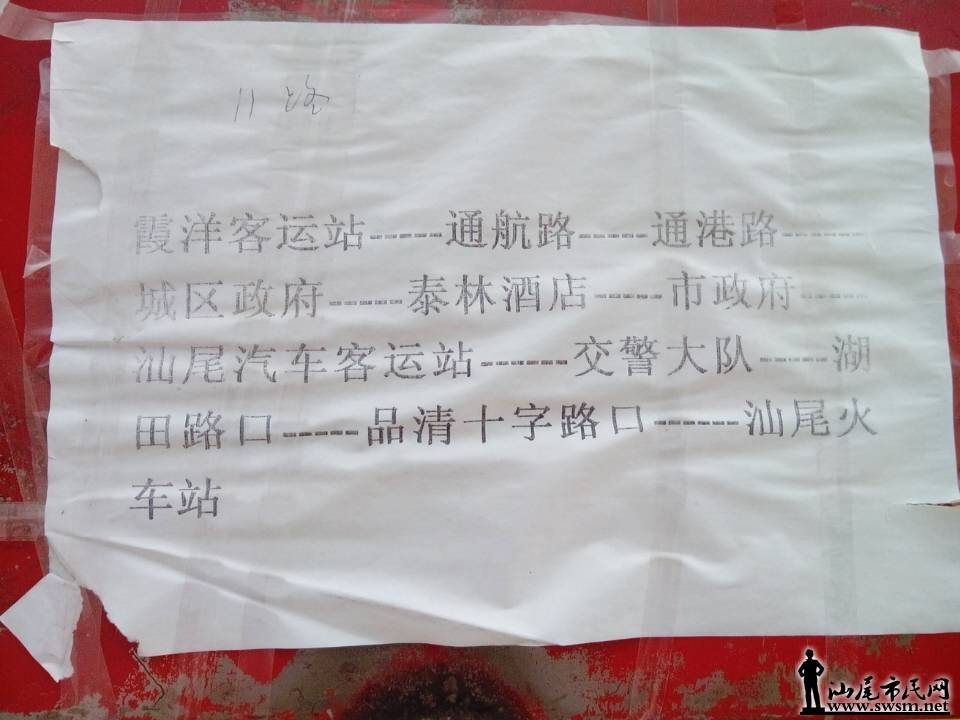 11路
霞洋客运站-----通航路-----通港路-----
城区政府-----泰林酒店-----市政府-----
汕尾汽车客运站-----交警大队-----湖
田路口-----品清十字路口-----汕尾火
车站
汕尾市民网
www.swsm.net